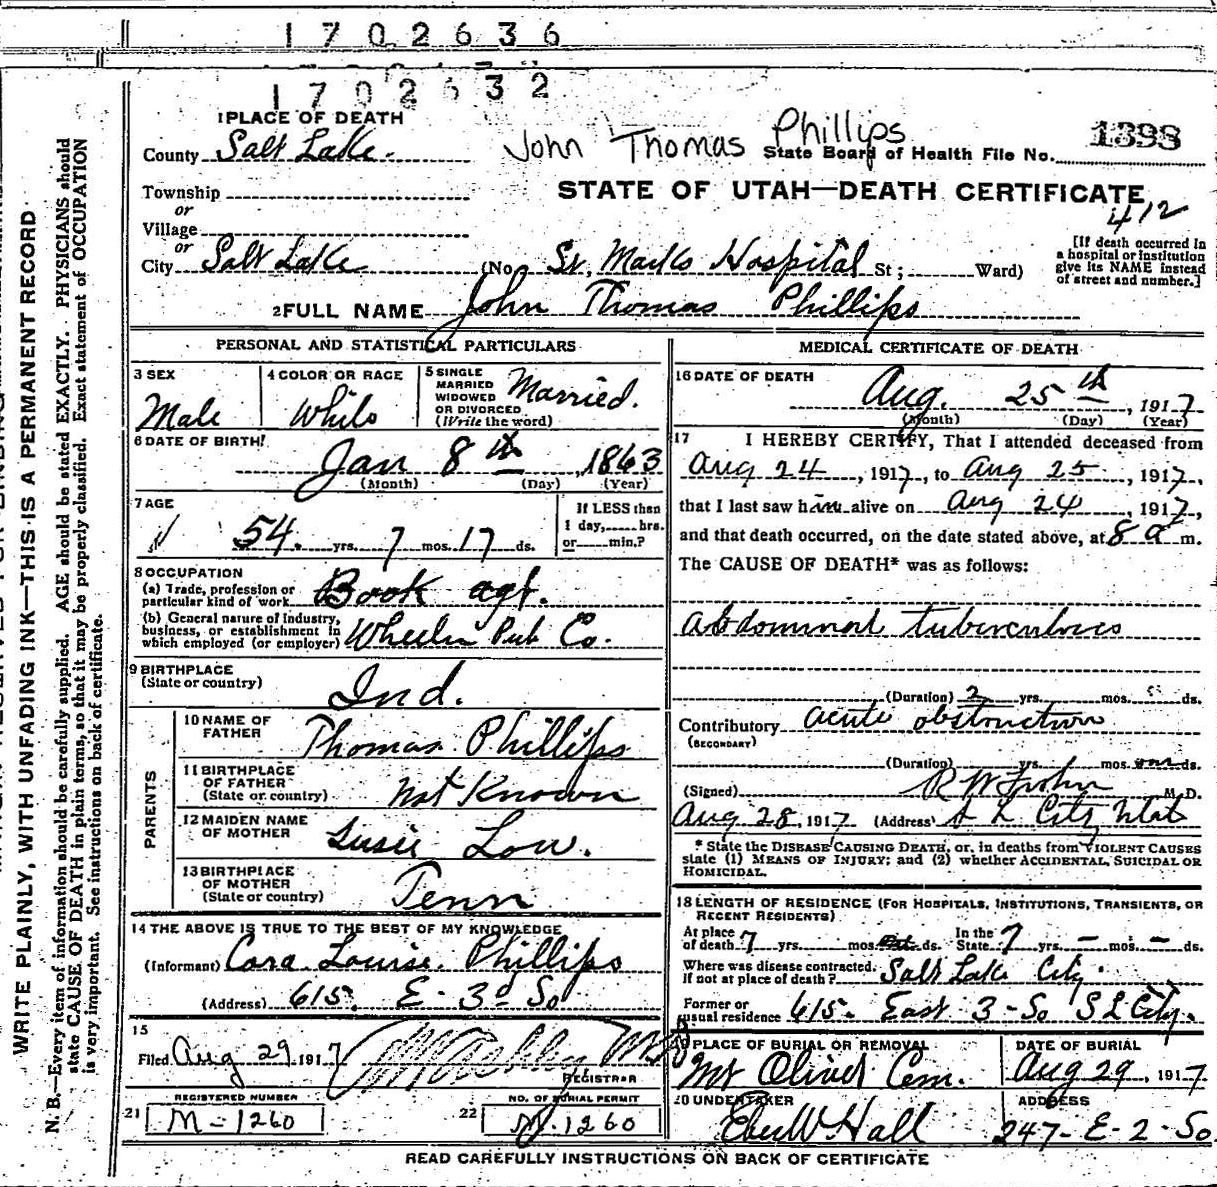 1702636
1702632
1 PLACE OF DEATH
County Salt Lake
John Thomas Phillips
State Board of Health File No. 1398
Township
or
Village
or
City Salt Lake (No. St. Marks Hospital St; Ward)
STATE OF UTAH—DEATH CERTIFICATE
412
[If death occurred in
a hospital or institution
give its NAME instead
of street and number.]
2 FULL NAME John Thomas Phillips
PERSONAL AND STATISTICAL PARTICULARS
3 SEX
Male
4 COLOR OR RACE
White
5 SINGLE
MARRIED
WIDOWED
OR DIVORCED
(Write the word)
Married.
6 DATE OF BIRTH
Jan 8th, 1863
(Month) (Day) (Year)
7 AGE
54 yrs. 7 mos. 17 ds.
If LESS than
1 day, hrs.
or min.?
8 OCCUPATION
(a) Trade, profession or
particular kind of work Book agt.
(b) General nature of industry,
business, or establishment in
which employed (or employer) Wheelin Pub Co.
9 BIRTHPLACE
(State or country)
Ind.
PARENTS
10 NAME OF
FATHER
Thomas Phillips
11 BIRTHPLACE
OF FATHER
(State or country)
Not Known
12 MAIDEN NAME
OF MOTHER
Susie Low.
13 BIRTHPLACE
OF MOTHER
(State or country)
Tenn
14 THE ABOVE IS TRUE TO THE BEST OF MY KNOWLEDGE
(Informant) Cora Louise Phillips
(Address) 615 E - 3d So
15
Filed Aug 29 1917
REGISTRAR
REGISTERED NUMBER
21 M-1260
NO. OF BURIAL PERMIT
22 M-1260
MEDICAL CERTIFICATE OF DEATH
16 DATE OF DEATH
Aug. 25th, 1917
(Month) (Day) (Year)
17 I HEREBY CERTIFY, That I attended deceased from
Aug 24, 1917, to Aug 25, 1917,
that I last saw him alive on Aug 24, 1917,
and that death occurred, on the date stated above, at 8 a m.
The CAUSE OF DEATH* was as follows:
Abdominal tuberculosis
(Duration) 2 yrs. mos. ds.
Contributory acute obstruction
(SECONDARY)
(Duration) yrs. mos. one ds.
(Signed) M.D.
Aug 28, 1917 (Address) S L City Utah
* State the DISEASE CAUSING DEATH, or, in deaths from VIOLENT CAUSES
state (1) MEANS OF INJURY; and (2) whether ACCIDENTAL, SUICIDAL OR
HOMICIDAL.
18 LENGTH OF RESIDENCE (FOR HOSPITALS, INSTITUTIONS, TRANSIENTS, OR
RECENT RESIDENTS)
At place
of death 7 yrs. mos. ds. In the
State 7 yrs. - mos. - ds.
Where was disease contracted.
if not at place of death? Salt Lake City.
Former or
usual residence 615 East 3 - So S L City.
19 PLACE OF BURIAL OR REMOVAL
Mt Olivet Cem.
DATE OF BURIAL
Aug 29, 1917
20 UNDERTAKER
Eber W Hall
ADDRESS
247 - E - 2 - So
READ CAREFULLY INSTRUCTIONS ON BACK OF CERTIFICATE
WRITE PLAINLY, WITH UNFADING INK—THIS IS A PERMANENT RECORD
N. B.—Every item of information should be carefully supplied. AGE should be stated EXACTLY. PHYSICIANS should
state CAUSE OF DEATH in plain terms, so that it may be properly classified. Exact statement of OCCUPATION
is very important. See instructions on back of certificate.